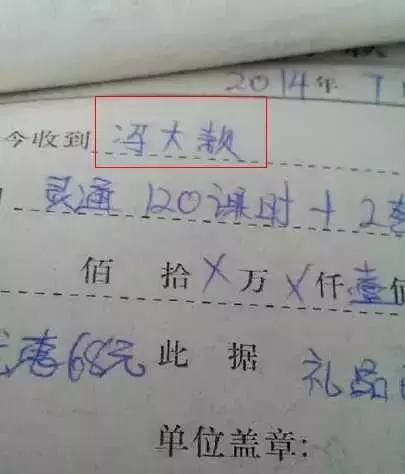 2014年7
今收到 冯大款
灵通 120课时+2套
佰 拾 X 万 X 仟 壹 佰
优惠68元 此 据 礼品
单位盖章: